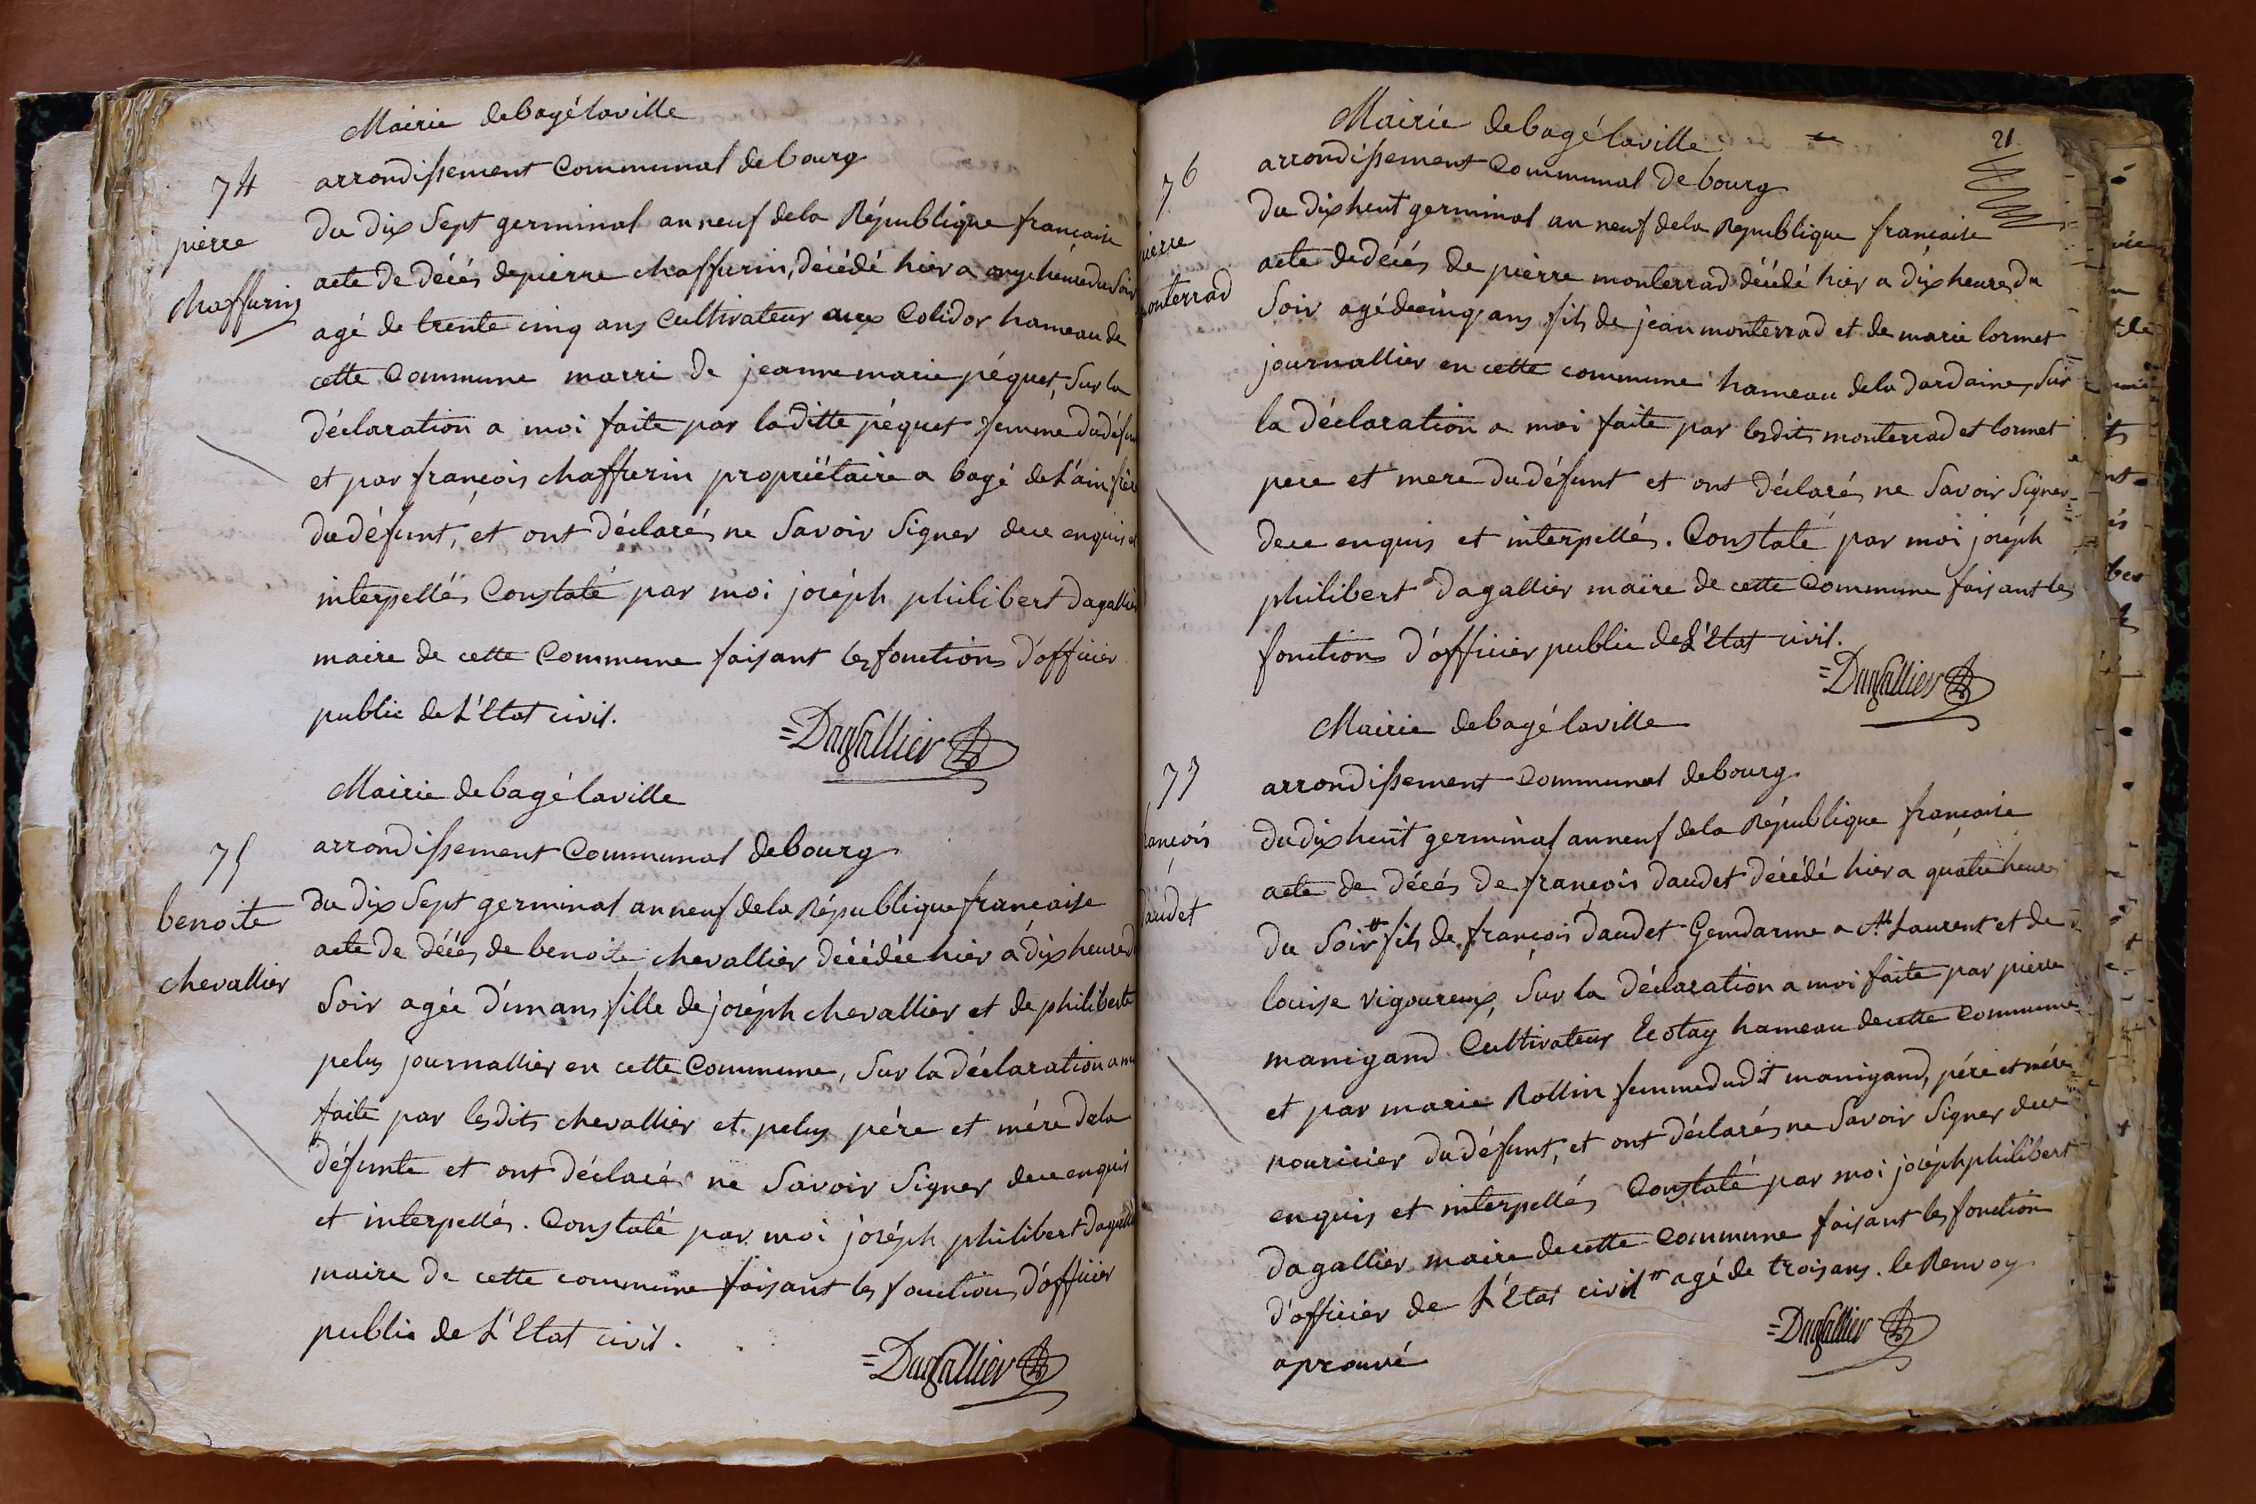 Mairie de bagé laville
74
arrondissement Communal de bourg
pierre
chaffurin
du dix Sept germinal an neuf de la République francaise
acte de décés de pierre chaffurin, décédé hier a onze heure du Soir
agé de trente cinq ans Cultivateur aux Colidor hameau de
cette Commune marri de jeanne marie péquet, Sur la
déclaration a moi faite par la ditte péquet femme du défun
et par françois chaffurin propriétaire a bagé de L'ain frère
du défunt, et ont déclarés ne Savoir Signer deue enquis et
interpellés Constaté par moi joséph philibert dagallier
maire de cette Commune faisant les fonctions d'officier
public de L'Etat civil.
=Dagallier
Mairie de bagé laville
75
arrondissement Communal de bourg
benoite
chevallier
du dix Sept germinal an neuf de la République francaise
acte de décés de benoite chevallier décédée hier a dix heure du
Soir agée d'un ans fille de joséph chevallier et de philiberte
pelus journallier en cette Commune, Sur la déclaration a moi
faite par lesdits chevallier et pelus pére et mére de la
défunte et ont déclarés ne Savoir Signer deue enquis
et interpellés. Constaté par moi joséph philibert dagallier
maire de cette commune faisant les fonctions d'officier
public de L'Etat civil.
=Dagallier
Mairie de bagé laville
21
76
arrondissement Communal de bourg
pierre
monterrad
du dix huit germinal an neuf de la République francaise
acte de décés de pierre monterrad décédé hier a dix heures du
Soir agé de cinq ans fils de jean monterrad et de marie lormet
journallier en cette commune hameau de la dardaine, Sur
la déclaration a moi faite par lesdits monterrad et lormet
pere et mere du défunt et ont déclarés ne Savoir Signer
deue enquis et interpellés. Constaté par moi joséph
philibert dagallier maire de cette Commune faisant les
fonctions d'officier public de L'Etat civil.
=Dagallier
Mairie de bagé laville
77
arrondissement Communal de bourg
francois
daudet
du dix huit germinal an neuf de la République francaise
acte de décés de françois daudet décédé hier a quatre heures
du Soir # fils de françois daudet Gendarme a St Laurent et de
louise vigoureux, Sur la déclaration a moi faite par pierre
manigand Cultivateur Ecotay hameau de cette Commune
et par marie Rollin femme dudit manigand, pére et mére
nouricier du défunt, et ont déclarés ne Savoir Signer deue
enquis et interpellés Constaté par moi joséph philibert
dagallier maire de cette Commune faisant les fonction
d'officier de L'Etat civil # agé de trois ans. le Renvoy
aprouvé
=Dagallier